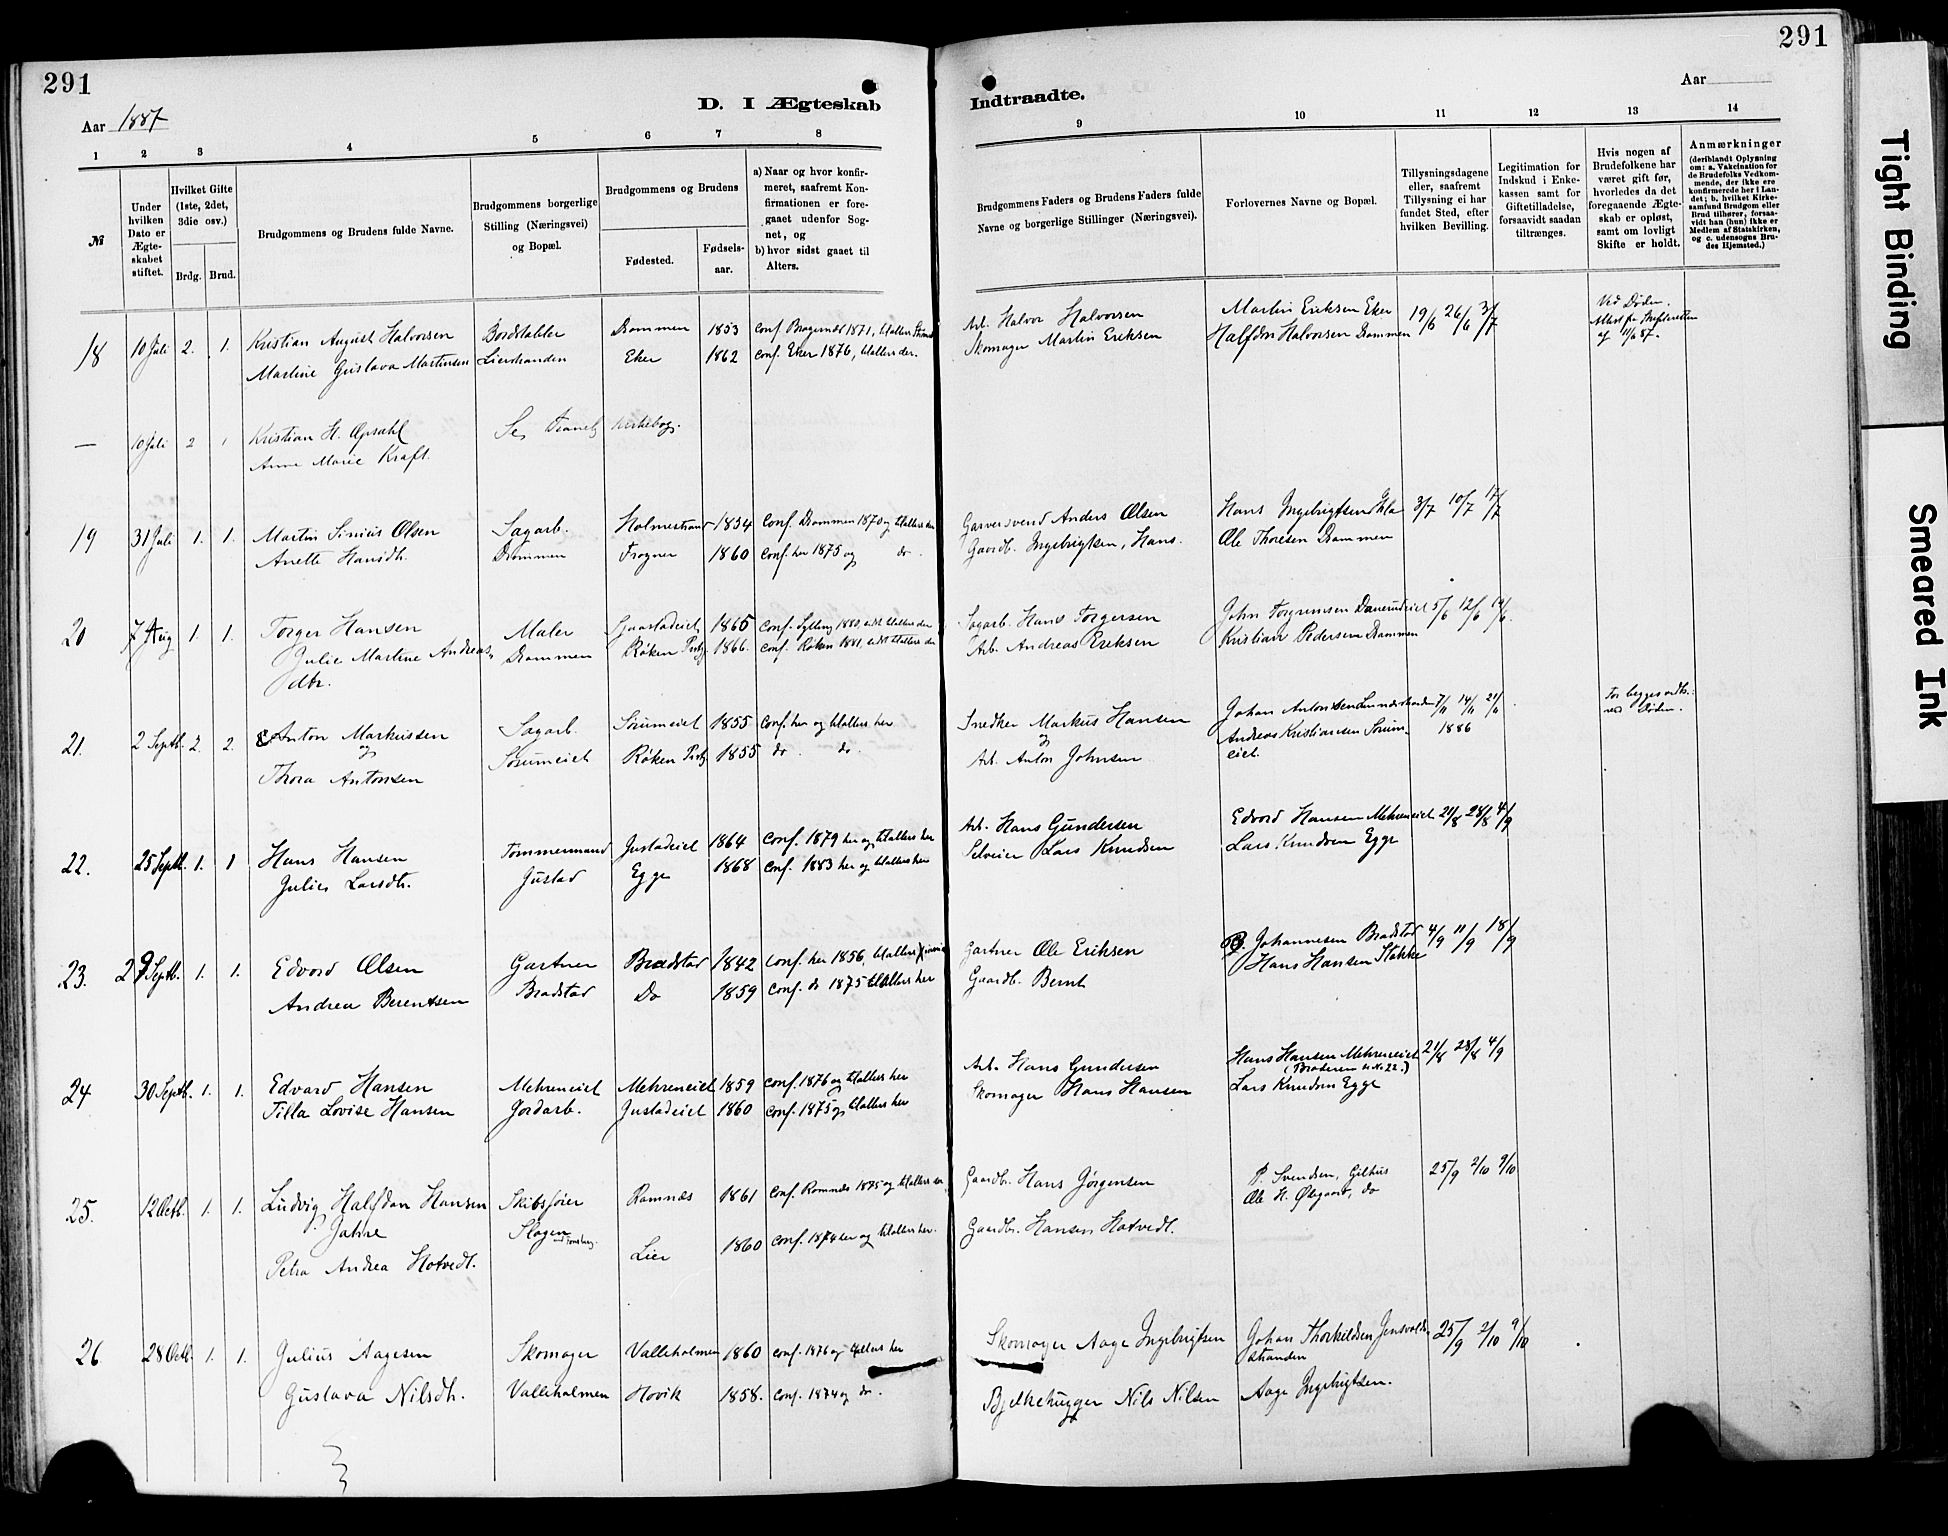 291
291
Aar 1887
D. I Ægteskab
Indtraadte.
Aar
1 2 3 4 5 6 7 8
9 10 11 12 13 14
№
Under hvilken Dato er Ægteskabet stiftet.
Hvilket Gifte (1ste, 2det, 3die osv.)
Brdg. Brud.
Brudgommens og Brudens fulde Navne.
Brudgommens borgerlige Stilling (Næringsvei) og Bopæl.
Brudgommens og Brudens
Fødested.
Fødselsaar.
a) Naar og hvor konfirmeret, saafremt Konfirmationen er foregaaet udenfor Sognet, og
b) hvor sidst gaaet til Alters.
Brudgommens Faders og Brudens Faders fulde Navne og borgerlige Stillinger (Næringsvei).
Forlovernes Navne og Bopæl.
Tillysningsdagene eller, saafremt Tillysning ei har fundet Sted, efter hvilken Bevilling.
Legitimation for Indskud i Enkekassen samt for Giftetilladelse, forsaavidt saadan tiltrænges.
Hvis nogen af Brudefolkene har været gift før, hvorledes da det foregaaende Ægteskab er opløst, samt om lovligt Skifte er holdt.
Anmærkninger
(deriblandt Oplysning om: a. Vakcination for de Brudefolks Vedkommende, der ikke ere konfirmerede her i Landet; b. hvilket Kirkesamfund Brudgom eller Brud tilhører, forsaavidt han (hun) ikke er Medlem af Statskirken, og c. udensogns Brudes Hjemsted.)
18 10 Juli 2. 1. Kristian August Halvorsen Bordstabler Drammen 1853 Conf. Bragernæs 1871, Arb. Halvor Halvorsen Martin Eriksen Eker 19/6 26/6 3/7 Ved Døden.
Martine Gustava Martinsen Lierstranden Eker 1862 Conf. Eker 1876, til alters der. Skomager Martin Eriksen Halfdan Halvorsen Drammen af 11/6 87.
— 10 Juli 2 1 Kristian H. Opsahl Se Tranby Kirkebog.
Anne Marie Kraft.
19 31 Juli 1. 1. Martin Sinius Olsen Sagarb. Holmestrand 1854 Conf. Drammen 1870 og til alters der Garversvend Anders Olsen Hans Ingebrigtsen 3/7 10/7 17/7
Anette Hansdtr. Drammen Frogner 1860 Conf. her 1875 og do. Gaardb. Ingebrigtsen, Hans. Ole Thoresen Drammen
20 7 Aug 1. 1. Torger Hansen Maler 1865 Conf. Sylling 1880, sidst til alters der Sagarb. Hans Torgersen John Torgrimsen 5/6 12/6 19/6
Julie Martine Andreas- Drammen Røken Prstg. 1866. Conf. Røken 1881, sidst til alters der Arb. Andreas Eriksen Kristian Pedersen Drammen
dtr.
21. 2 Septb. 2. 2. Anton Markussen Sagarb. Sørumeiet 1855 Conf. her og til alters her Snedker Markus Hansen Johan Antonsen 7/11 14/11 21/11 For begges vedk.:
og og Andreas Kristiansen Sørum- 1886 ved Døden.
Thora Antonsen Sørumeiet Røken Prstg. 1855 do. do. Arb. Anton Johnsen eiet.
22. 25 Septb. 1. 1 Hans Hansen Tømmermand Gustadeiet 1864 Conf. 1879 her og til alters her Arb. Hans Gundersen Edvard Hansen Mehreneiet 21/8 28/8 4/9
Julie Larsdtr. Gustad Egge 1868 Conf. 1883 her og til alters her Selveier Lars Knudsen Lars Knudsen Egge
23. 29 Septb. 1. 1. Edvard Olsen Gartner Bradstad 1842 Conf. her 1856, til alters Gartner Ole Eriksen B. Johannesen Bradstad 4/9 11/9 18/9
Andrea Berentsen Bradstad Do 1859 Conf. do 1875 til alters her Gaardb. Bernt Hans Hansen Stokke
24 30 Septb. 1. 1. Edvard Hansen Mehreneiet Mehreneiet 1859 Conf. 1876 og til alters her Arb. Hans Gundersen Hans Hansen Mehreneiet 21/8 28/8 4/9
(Broderen se No 22.)
Tilla Lovise Hansen Jordarb. Gustadeiet 1860 Conf. 1875 og til alters her Skomager Hans Hansen Lars Knudsen Egge
25. 12 Octb. 1. 1. Ludvig Halfdan Hansen Skibsfører Ramnæs 1861 Conf. Ramnæs 1875 og til alters der, Gaardbr. Hans Jørgensen P. Svendsen, Gilhus 25/9 2/10 9/10
Jahre Slagen Ole H. Øegaard, do
Petra Andrea Hotvedt. Lier 1860 Conf. 1874 her og til alters her. Gaardbr. Hansen Hotvedt.
26 28 Octb. 1. 1. Julius Aagesen Skomager Valleholmen 1860 Conf. 1876 og til alters her Skomager Aage Ingebrigtsen Johan Thorkildsen 25/9 2/10 9/10
stranden
Gustava Nilsdtr. Valleholmen Hovik 1858. Conf. 1874 og do. Bjelkehugger Nils Nilsen Aage Ingebrigtsen.
Tight Binding
Smeared Ink